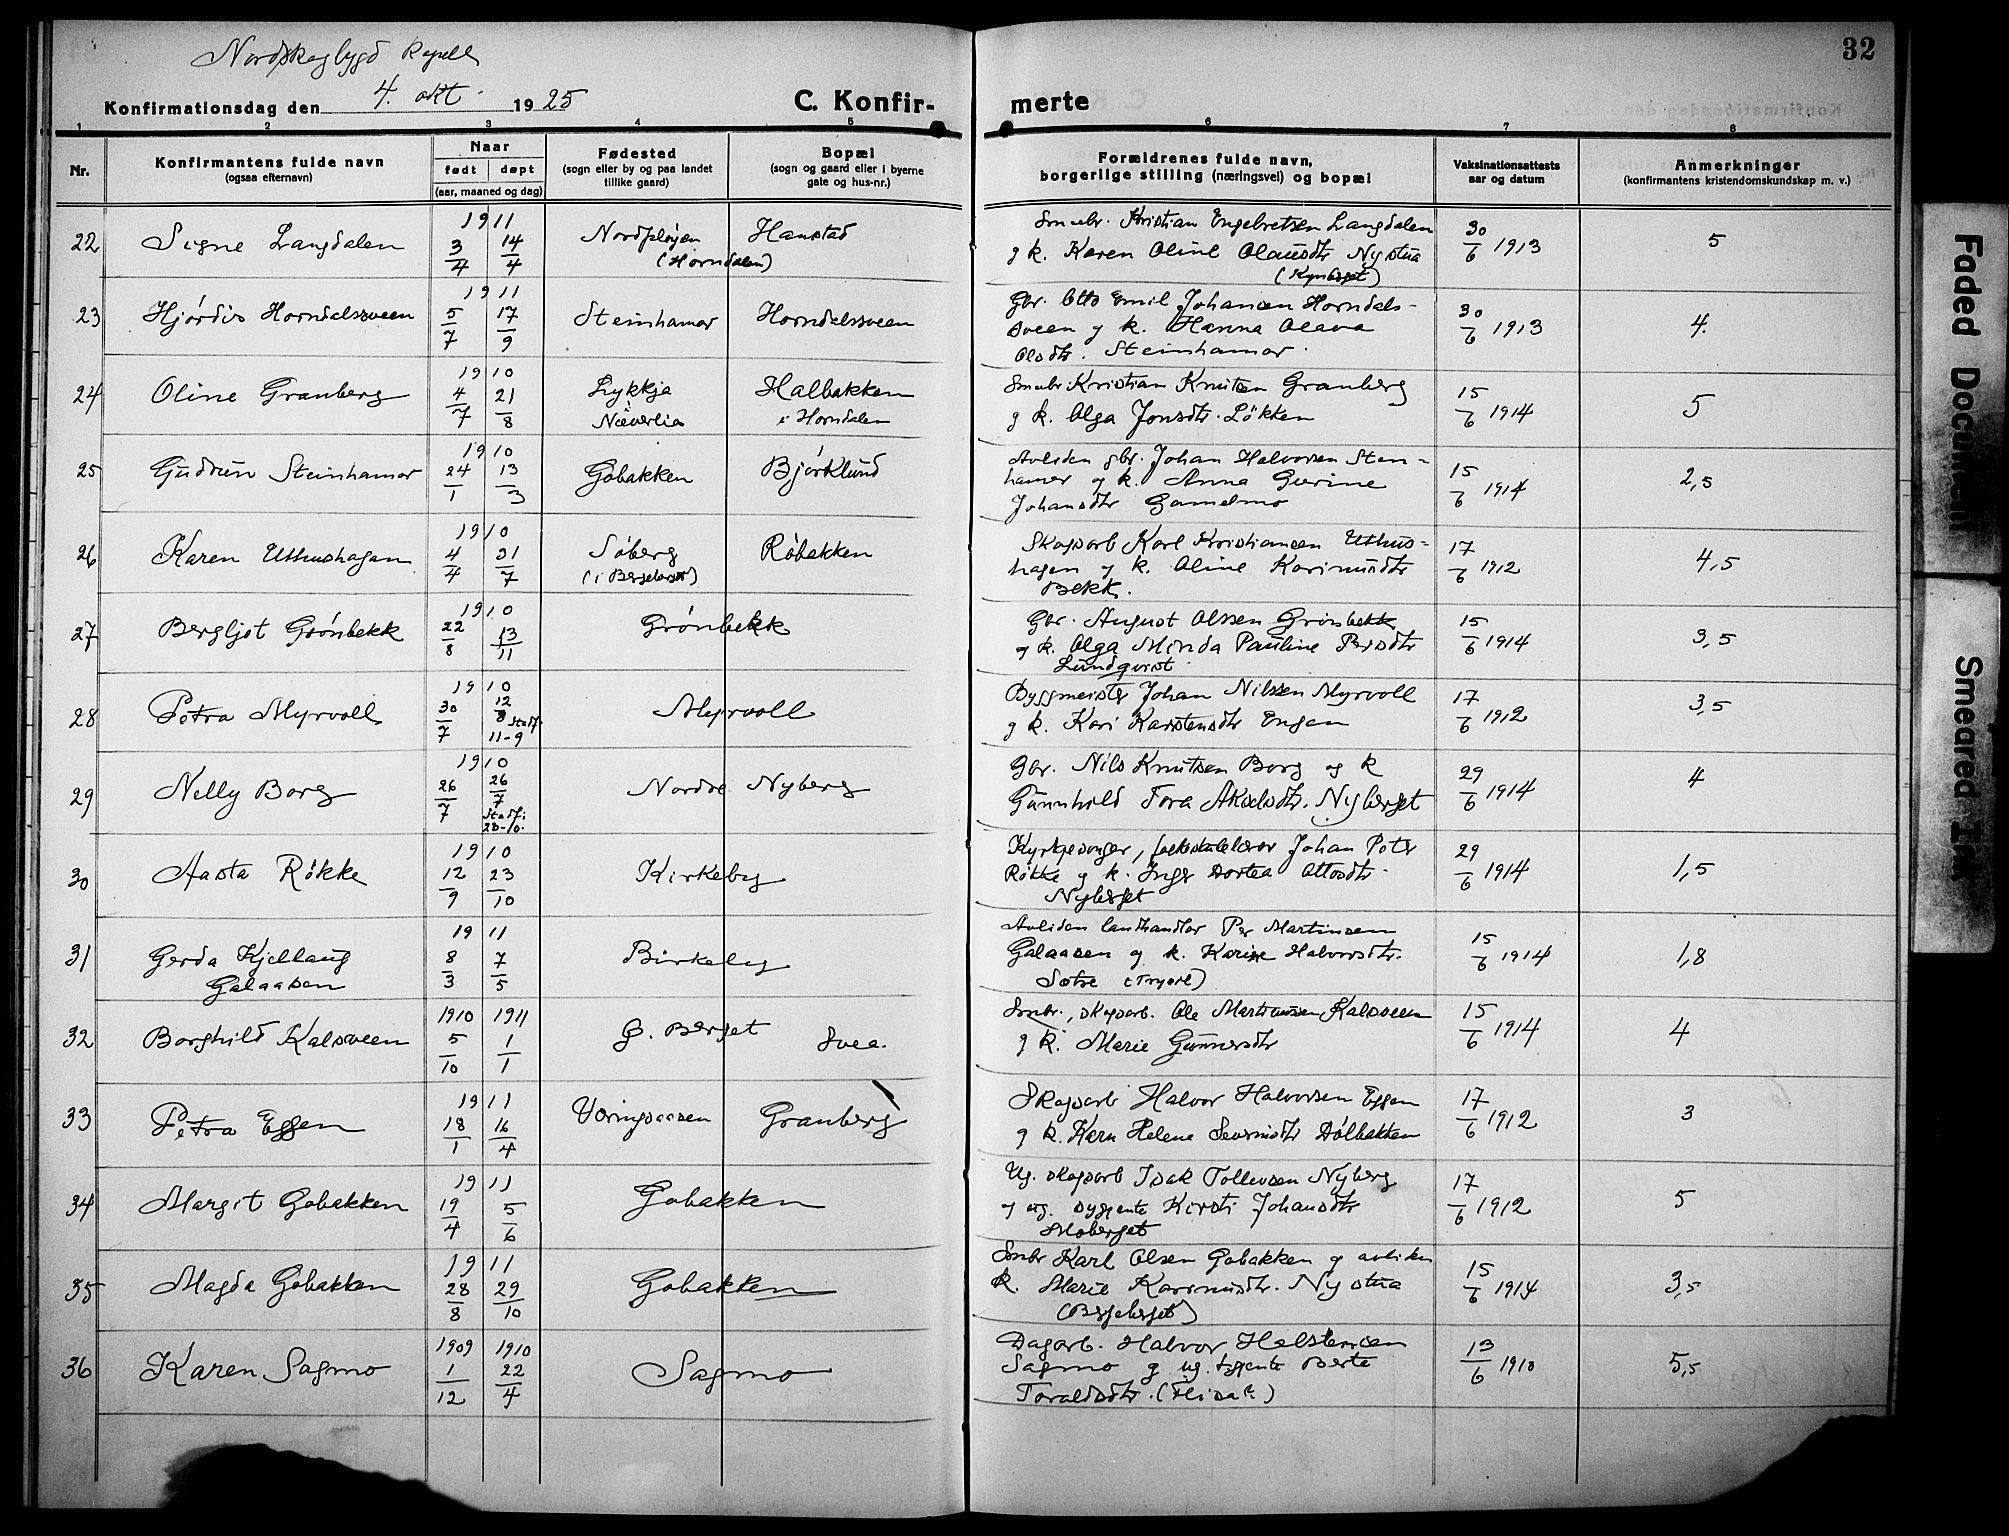 32
Nordskogbygd kapell
Konfirmationsdag den 4. okt. 1925
C. Konfir- merte
1 2 3 4 5 6 7 8
Nr.
Konfirmantens fulde navn
(ogsaa efternavn)
Naar
født døpt
(aar, maaned og dag)
Fødested
(sogn eller by og paa landet
tillike gaard)
Bopæl
(sogn og gaard eller i byerne
gate og hus-nr.)
Forældrenes fulde navn,
borgerlige stilling (næringsvei) og bopæl
Vaksinationsattests
aar og datum
Anmerkninger
(konfirmantens kristendomskundskap m. v.)
22 Signe Langdalen 1911 3/4 14/4 Hanstad
(Horndalen)
Smabr. Kristian Engebretsen Langdalen
g k. Karen Oline Olausdtr Nystua
(Kynberget)
30/6 1913 5
23 Hjørdis Horndalssveen 1911 5/7 17/9 Steinhamar Horndalssveen
Gbr. Otto Emil Johansen Horndals-
sveen g k. Hanna Olava
Olsdtr. Steinhamar.
30/6 1913 4.
24 Oline Granberg 1910 4/7 21/8 Lykkja Halbakken
Næverlia i Horndalen
Smabr Kristian Knutsen Granberg
g k. Olga Jonsdtr. Løkken
15/6 1914 5
25 Gudrun Steinhamar 1910 24/1 13/3 Gobakken Bjørklund
Avliden gbr. Johan Halvorsen Stein-
hamar og k. Anna Gurine
Johansdtr Gamelmo
15/6 1914 2,5
26 Karen Uthushagen 1910 4/4 31/7 Søberg Røbakken
(i Bergeberget)
Skogarb Karl Kristiansen Uthus-
hagen g k. Oline Karimusdtr
Bekk.
17/6 1912 4,5
27 Bergljot Grønbekk 1910 22/8 13/11 Grønbekk
Gbr. August Olssen Grønbekk
g k. Olga Minda Pauline Persdtr
Lundqvist
15/6 1914 3,5
28 Petra Myrvoll 1910 30/7 12/8 Stadf. 11-9 Myrvoll
Byggmeister Johan Nilssen Myrvoll
g k. Kari Karstensdtr Engen
17/6 1912 3,5
29 Nelly Borg 1910 26/7 26/7 Stadf: 23-10. Nordre Nyberg
Gbr. Nils Knutsen Borg og k
Gunnhild Tora Akselsdtr. Nyberget
29/6 1914 4
30 Aasta Røkke 1910 12/9 23/10 Kirkeby
Kyrkjesonger, folkeskulelærar Johan Peter
Røkke g k. Inger Dortea Ottosdtr.
Nyberget
29/6 1914 1,5
31 Gerda Kjellaug 1911 8/3 7/5 Birkeby
Galaasen
Avliden landhandler Per Martinsen
Galaasen g k. Karine Halvorsdtr.
Sætre (Trysil)
15/6 1914 1,8
32 Borghild Kalsveen 1910 5/10 1911 1/1 G. Berget Svea.
Smbr., skogarb. Ole Martinusen Kalsveen
g k. Marie Gunnersdtr
15/6 1914 4
33 Petra Eggen 1911 18/1 16/4 Væringsaasen Granberg
Skogarb Halvor Halvorsen Eggen
g k. Karn Helene Severinsdtr Dølbakken
17/6 1912 3
34 Margit Gobakken 1911 19/4 5/6 Gobakken
Ug. skogarb Isak Tollevsen Nyberg
g ug. sygjente Kirsti Johansdtr
Moberget
17/6 1912 5
35 Magda Gobakken 1911 28/8 29/10 Gobakken
Smbr Karl Olsen Gobakken g avliden
k. Marie Karimusdtr. Nystua
(Bergeberget)
15/6 1914 3,5
36 Karen Sagmo 1909 1/12 1910 22/4 Sagmo
Dagarb. Halvor Halstensen
Sagmo g ug. tjgjente Berte
Toraldsdtr. (Flisa?)
13/6 1910 5,5
Faded Document
Smeared Ink